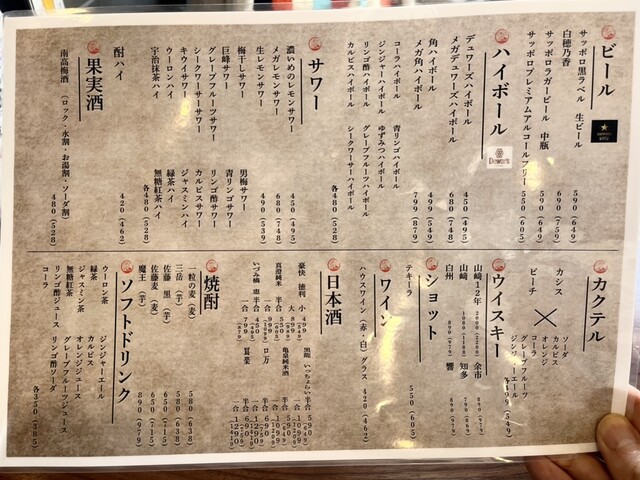 ビール
サッポロ黒ラベル 生ビール 590(649)
白穂乃香 690(759)
サッポロラガービール 中瓶 590(649)
サッポロプレミアムアルコールフリー 550(605)
ハイボール
Dewar's
デュワーズハイボール 450(495)
メガデュワーズハイボール 680(748)
角ハイボール 499(549)
メガ角ハイボール 799(879)
コーラハイボール 青リンゴハイボール
ジンジャーハイボール グレープフルーツハイボール
リンゴ酢ハイボール ゆずみつハイボール
カルピスハイボール シークワーサーハイボール
各480(528)
サワー
濃いめのレモンサワー 450(495)
メガレモンサワー 680(748)
生レモンサワー 490(539)
梅干しサワー 男梅サワー
巨峰サワー 青リンゴサワー
グレープフルーツサワー リンゴ酢サワー
シークワーサーサワー カルピスサワー
キウイサワー ジャスミンハイ
ウーロンハイ 緑茶ハイ
宇治抹茶ハイ 無糖紅茶ハイ
各480(528)
酎ハイ 420(462)
果実酒
南高梅酒 (ロック・水割・お湯割・ソーダ割) 480(528)
カクテル
カシス
ピーチ
×
ソーダ
カルピス
オレンジ
コーラ
グレープフルーツ
ジンジャーエール
各499(549)
ウイスキー
山崎12年 2000(2200) 余市 890(979)
山崎 1000(1100) 知多 890(979)
白州 890(979) 響 890(979)
ショット
テキーラ 550(605)
ワイン
ハウスワイン(赤・白) グラス 420(462)
日本酒
豪快 徳利 小 499
大
真澄純米 半合 500
一合 999
いづみ橋 恵 半合 400
一合 799
黒龍 いっちょらい 半合 590
一合 1099
亀泉純米酒 半合
一合
ロ万 半合
一合 1290
半合 690
一合 1290
焼酎
一粒の麦(麦) 580(638)
三岳(芋) 580(638)
佐藤 黒(芋) 650(715)
佐藤麦(麦) 650(715)
魔王(芋) 890(979)
ソフトドリンク
ウーロン茶 ジンジャーエール
緑茶 カルピス
ジャスミン茶 オレンジジュース
無糖紅茶 グレープフルーツジュース
リンゴ酢ジュース リンゴ酢ソーダ
コーラ
各350(385)